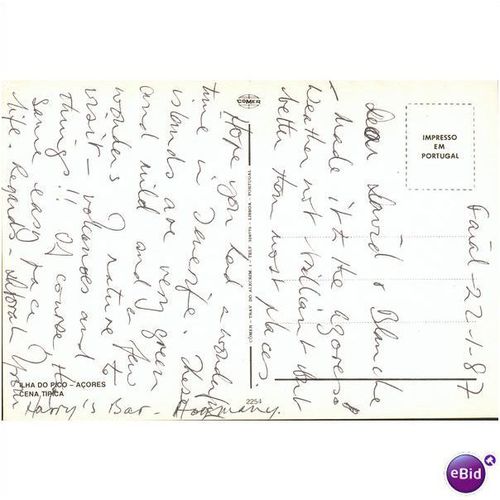 Faial - 22-1-87
Dear David & Blanche
- Made it to the Azores.
Weather not brilliant but
better than most places.
Hope you had a wonderful
time in Tenerife. These
islands are very green
and mild and a few
wonders of nature to
visit - volcanoes and
things!! Of course the
same easy pace
life. Regards - Deborah
from
Harry's Bar -
IMPRESSO
EM
PORTUGAL
COMER
COMER - TRAV. DO ALECRIM, - TELF. - LISBOA - PORTUGAL
ILHA DO PICO - AÇORES
CENA TIPICA
2254
eBid